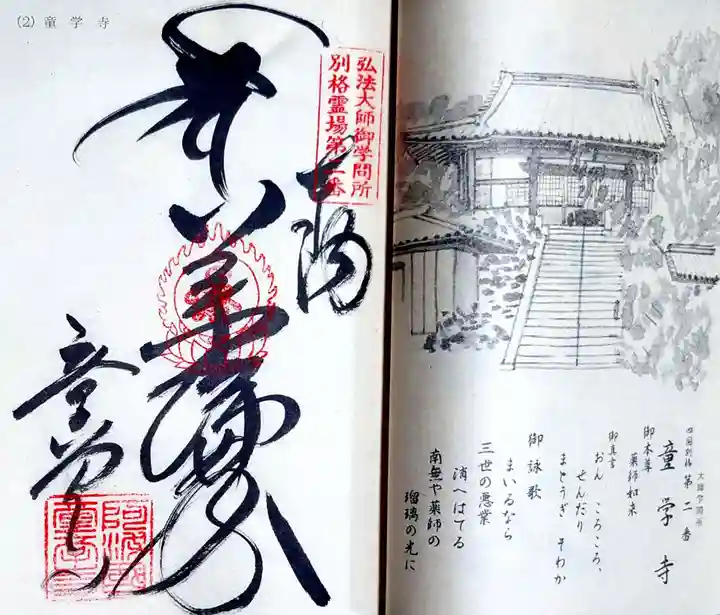 (2) 童学寺
弘法大師御学問所
別格霊場第二番
大師学問所
四国別格 第二番
童学寺
御本尊
薬師如来
御真言
おん ころころ、
せんだり
まとうぎ そわか
御詠歌
まいるなら
三世の悪業
消へはてる
南無や薬師の
瑠璃の光に